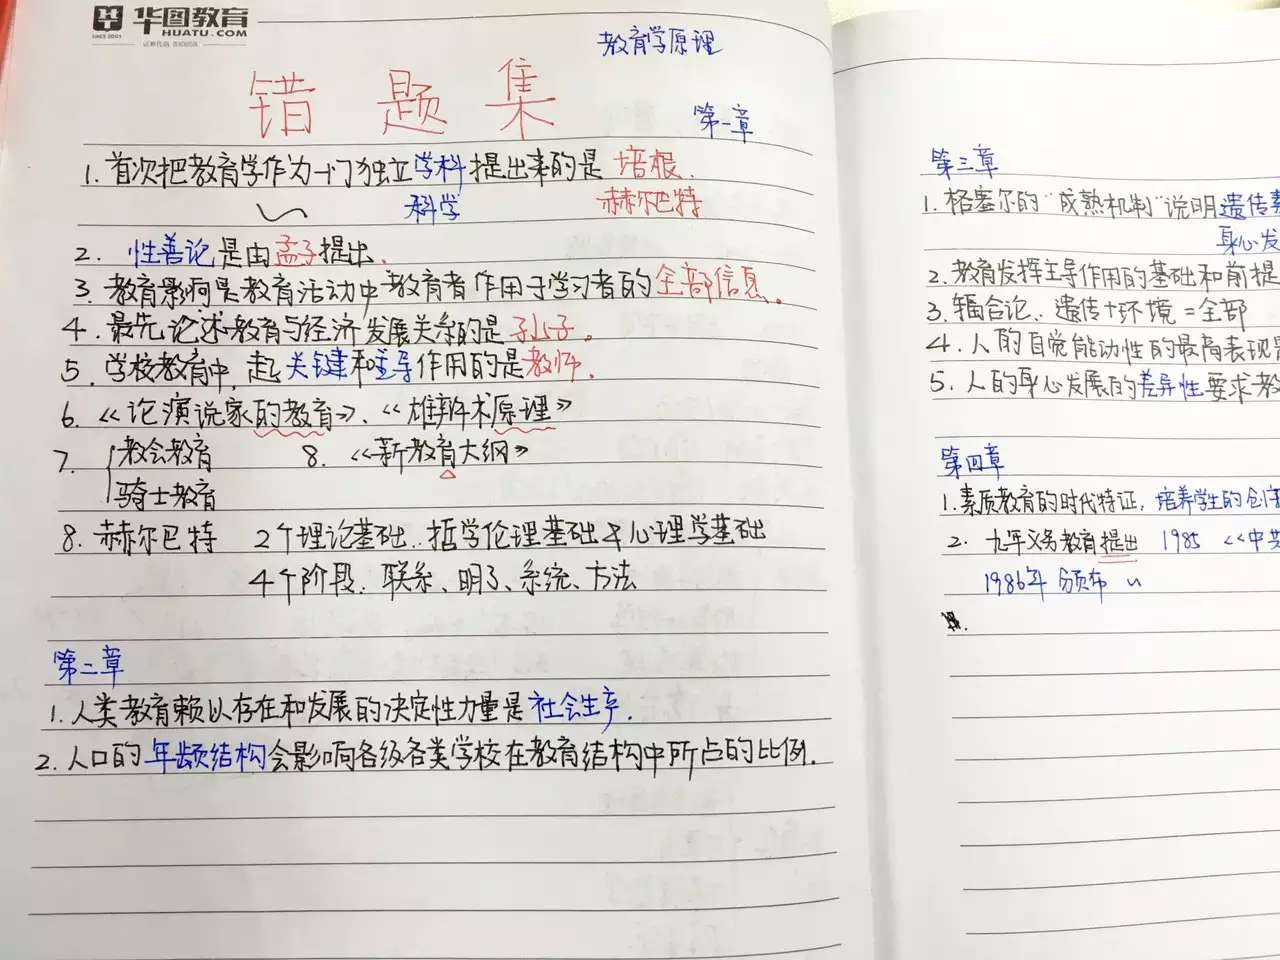 华图教育
HUATU.COM
SINCE 2001
教育学原理
错题集
第一章
1. 首次把教育学作为一门独立学科提出来的是 培根.
科学 赫尔巴特
2. 性善论是由孟子提出.
3. 教育影响是教育活动中教育者作用于学习者的全部信息。
4. 最先论述教育与经济发展关系的是 孔子。
5. 学校教育中,起关键和主导作用的是教师.
6. 《论演说家的教育》、《雄辩术原理》
7. 教会教育 8. 《新教育大纲》
骑士教育
8. 赫尔巴特 2个理论基础:哲学伦理基础与心理学基础
4个阶段:联系、明了、系统、方法
第二章
1. 人类教育赖以存在和发展的决定性力量是社会生产.
2. 人口的年龄结构会影响各级各类学校在教育结构中所占的比例.
第三章
1. 格塞尔的"成熟机制"说明遗传
身心发
2. 教育发挥主导作用的基础和前提
3. 辐合论:遗传+环境=全部
4. 人的自觉能动性的最高表现是
5. 人的身心发展的差异性要求教
第四章
1. 素质教育的时代特征,培养学生的创
2. 九年义务教育提出 1985 《中共
1986年 颁布